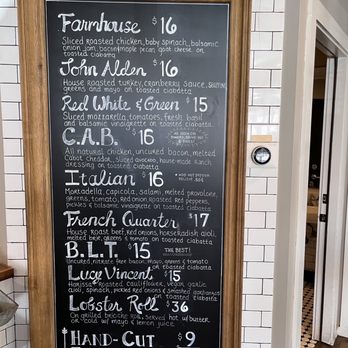 Farmhouse $16
Sliced roasted chicken, baby spinach, balsamic
onion jam, bacon, maple pecan goat cheese on
toasted ciabatta
John Alden $16
House roasted turkey, cranberry sauce, stuffin
greens and mayo on toasted ciabatta
Red White & Green $15
Sliced mozzarella, tomatoes, fresh basil
and balsamic vinaigrette on toasted ciabatta
C.A.B. $16
All natural chicken, uncured bacon, melted
Cabot cheddar, sliced avocado, house-made ranch
dressing on toasted ciabatta
Italian $16
* add hot pepper
relish .50¢
Mortadella, capicola, salami, melted provolone,
greens, tomato, red onion, roasted red peppers,
pickles & balsamic vinaigrette on toasted ciabatta
French Quarter $17
House roast beef, red onions, horseradish aioli,
melted brie, greens & tomato on toasted ciabatta
B.L.T. $15
THE BEST!
Uncured nitrate free bacon, mayo, greens & tomato
on toasted ciabatta
Lucy Vincent $15
Harissa roasted cauliflower, vegan garlic
aioli, spinach, pickled red onions & smashed avocado
on toasted ciabatta
Lobster Roll $36
On grilled brioche roll, served hot w/ butter
or cold w/ mayo & lemon juice
HAND-CUT $9